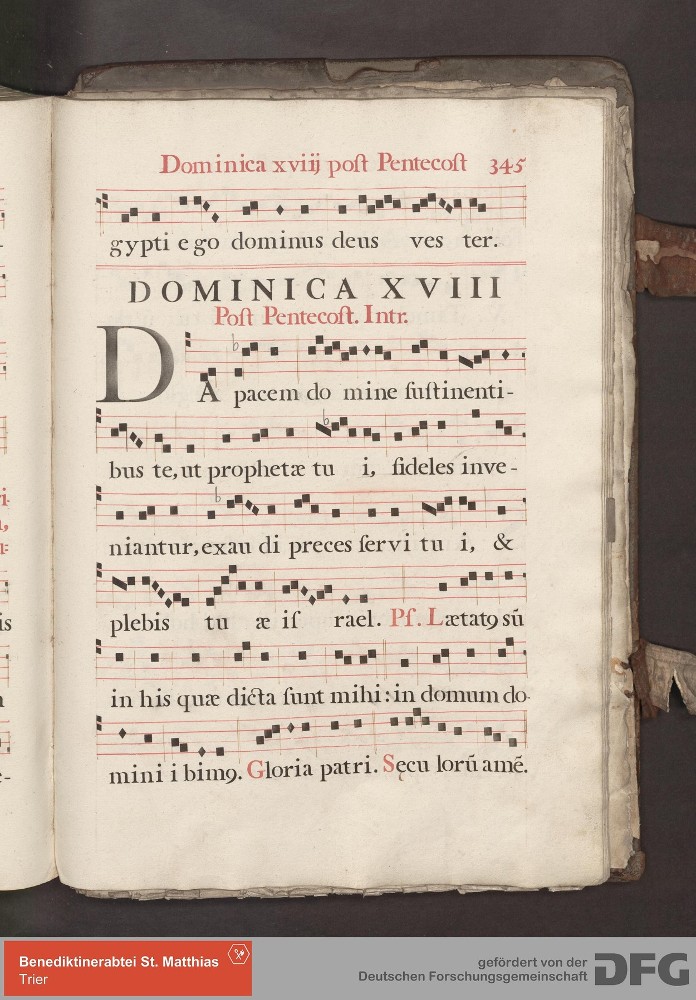 Dominica xviij poſt Pentecoſt 345
gypti ego dominus deus ves ter.
DOMINICA XVIII
Poſt Pentecoſt. Intr.
DA pacem do mine ſuſtinenti-
bus te, ut prophetæ tu i, fideles inve-
niantur, exau di preces ſervi tu i, &
plebis tu æ iſ rael. Pſ. Lætatꝯ sū
in his quæ dicta ſunt mihi: in domum do-
mini i bimꝯ. Gloria patri. Sęcu lorū amẽ.
Benediktinerabtei St. Matthias
Trier
gefördert von der
Deutschen Forschungsgemeinschaft
DFG